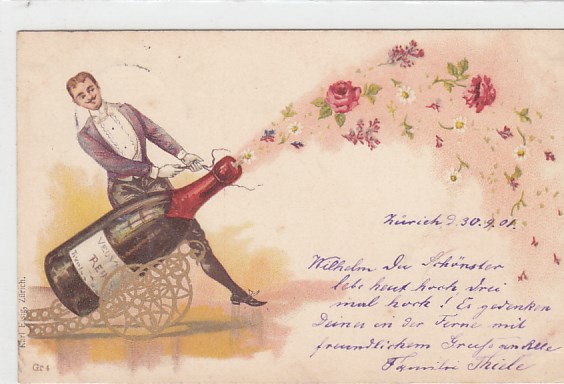 Zürich, d. 30.9.01.
Wilhelm Du Schönster
leb heut hoch drei
mal hoch! Es gedenken
Deiner in der Ferne mit
freundlichem Gruss an Alle
Familie Thiele
VEUVE
Karl Essig, Zürich.
Gr 4